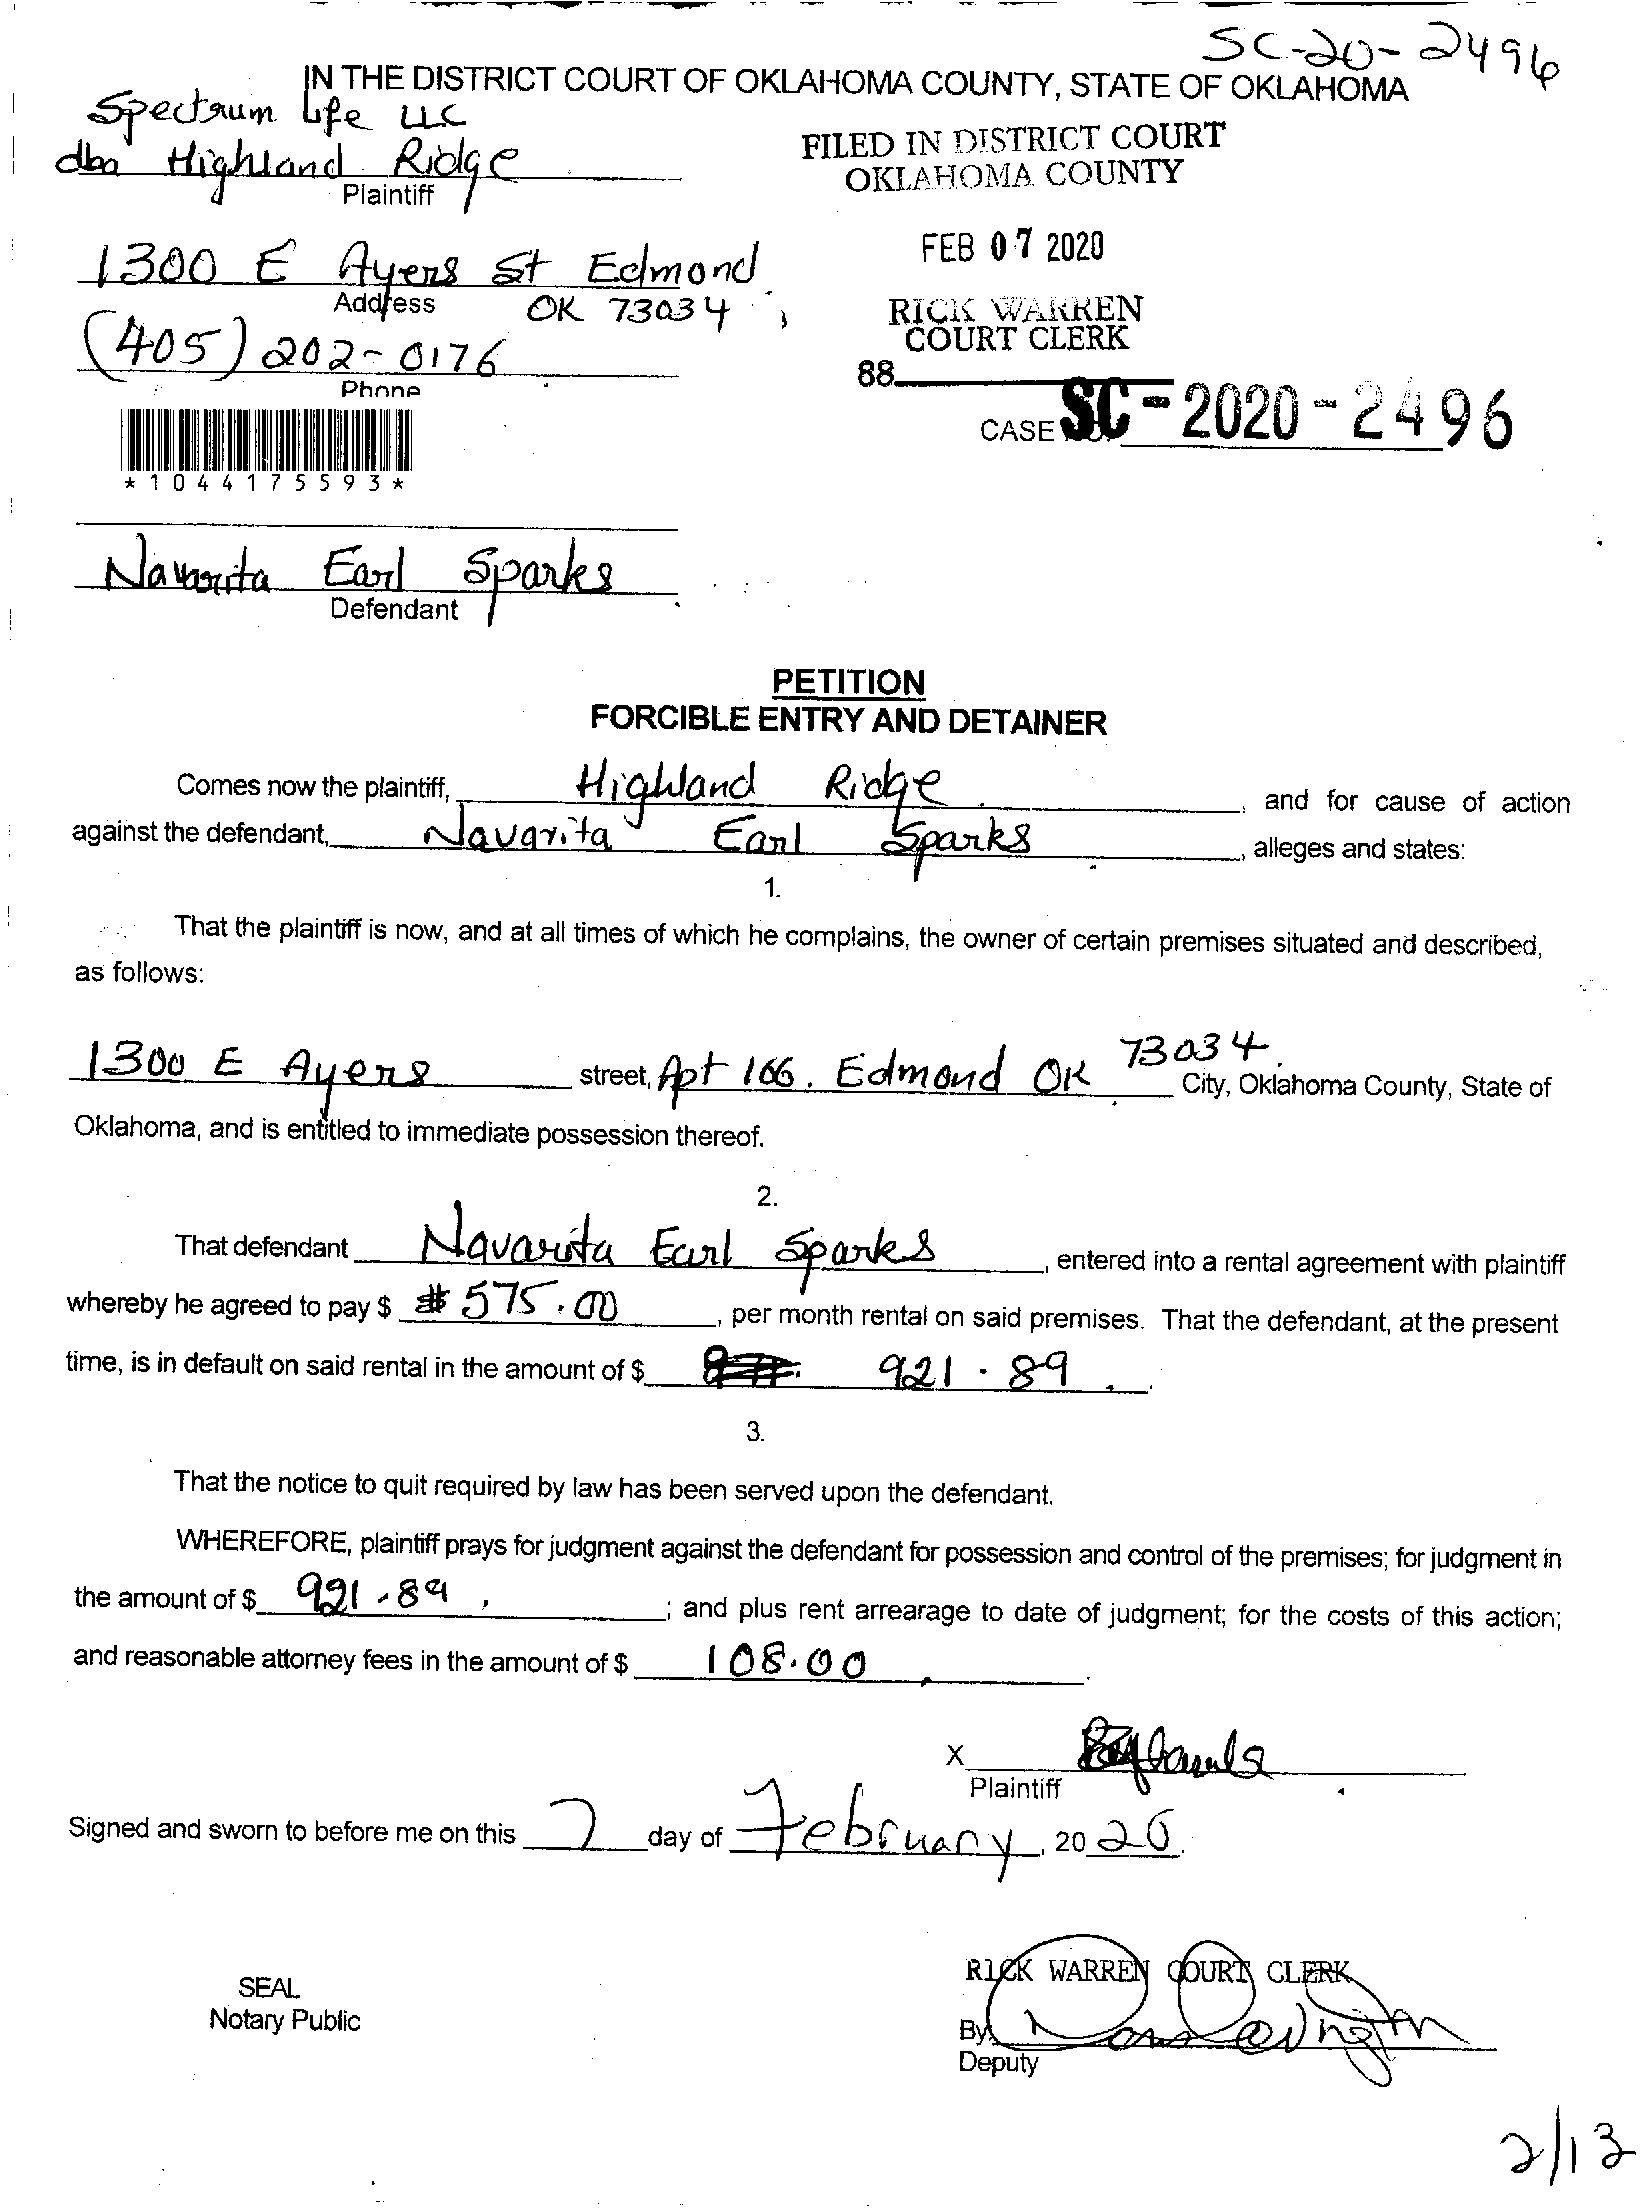 SC-20-2496
IN THE DISTRICT COURT OF OKLAHOMA COUNTY, STATE OF OKLAHOMA
Spectrum Life LLC
dba Highland Ridge
Plaintiff
FILED IN DISTRICT COURT
OKLAHOMA COUNTY
FEB 07 2020
RICK WARREN
COURT CLERK
88
1300 E Ayers St Edmond
Address OK 73034
(405) 202-0176
Phone
CASE SC-2020-2496
*1044175593*
Navarita Earl Sparks
Defendant
PETITION
FORCIBLE ENTRY AND DETAINER
Comes now the plaintiff, Highland Ridge, and for cause of action
against the defendant, Navarita Earl Sparks, alleges and states:
1.
That the plaintiff is now, and at all times of which he complains, the owner of certain premises situated and described,
as follows:
1300 E Ayers street, Apt 166. Edmond OK 73034 City, Oklahoma County, State of
Oklahoma, and is entitled to immediate possession thereof.
2.
That defendant Navarita Earl Sparks, entered into a rental agreement with plaintiff
whereby he agreed to pay $ # 575.00, per month rental on said premises. That the defendant, at the present
time, is in default on said rental in the amount of $ 921.89.
3.
That the notice to quit required by law has been served upon the defendant.
WHEREFORE, plaintiff prays for judgment against the defendant for possession and control of the premises; for judgment in
the amount of $ 921.89; and plus rent arrearage to date of judgment; for the costs of this action;
and reasonable attorney fees in the amount of $ 108.00.
X
Plaintiff
Signed and sworn to before me on this 7 day of February, 2020.
SEAL
Notary Public
RICK WARREN COURT CLERK
By
Deputy
2/13